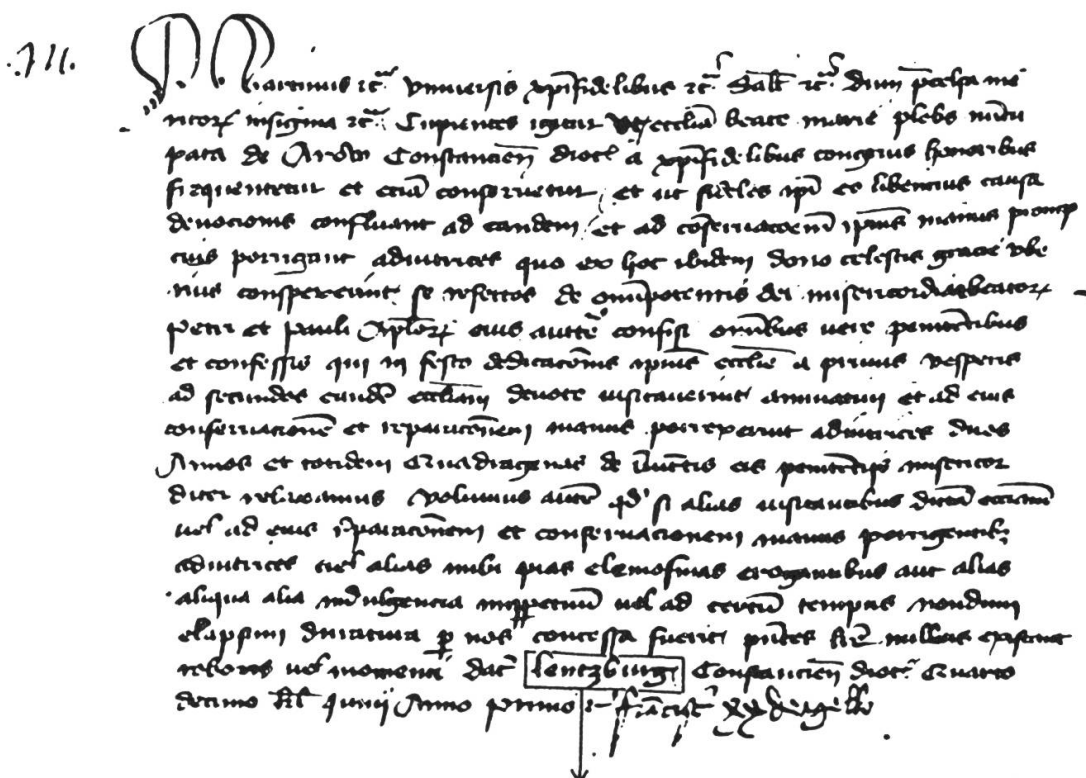 Martinus etc. Universis xpifidelibus etc. Salt etc. Dum precelsa me
ritorum insignia etc. Cupientes igitur ut ecclia beate marie plebs nuncu
pata de Arow Constancien dioc a xpifidelibus congruis honoribus
frequentetur et eciam conservetur et ut fideles ipi eo libencius causa
devocionis confluant ad eandem et ad conservacoem ipius manus promp
cius porrigant adiutrices quo ex hoc ibidem dono celestis gracie ube
rius conspexerint se refectos de omipotentis dei misericordia et beator
Petri et Pauli Aplor eius aucte confisi omibus vere penitentibus
et confessis qui in festo dedicacionis ipius ecclie a primis vesperis
ad secundas eandem eccliam devote visitaverint annuatim et ad eius
conservacionem et reparacionem manus porrexerint adiutrices duos
Annos et totidem Quadragenas de iniunctis eis penitentijs misericor
diter relaxamus Volumus autem qd si alias visitantibus dictam eccliam
vel ad eius reparacionem et conservacionem manus porrigentib
adiutrices vel alias inibi pias elemosinas erogantibus aut alias
aliqua alia indulgencia imperpetuum vel ad certum tempus nondum
elapsum duratura per nos concessa fuerit pntes lre nullius existant
roboris vel momenti Dat lentzburg Constancien dioc Quarto
decimo kl Junij Anno primo